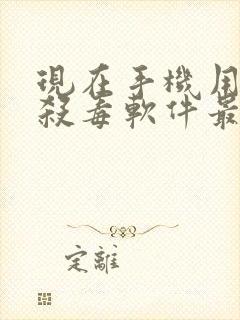 現在手機用
殺毒軟件最
定離